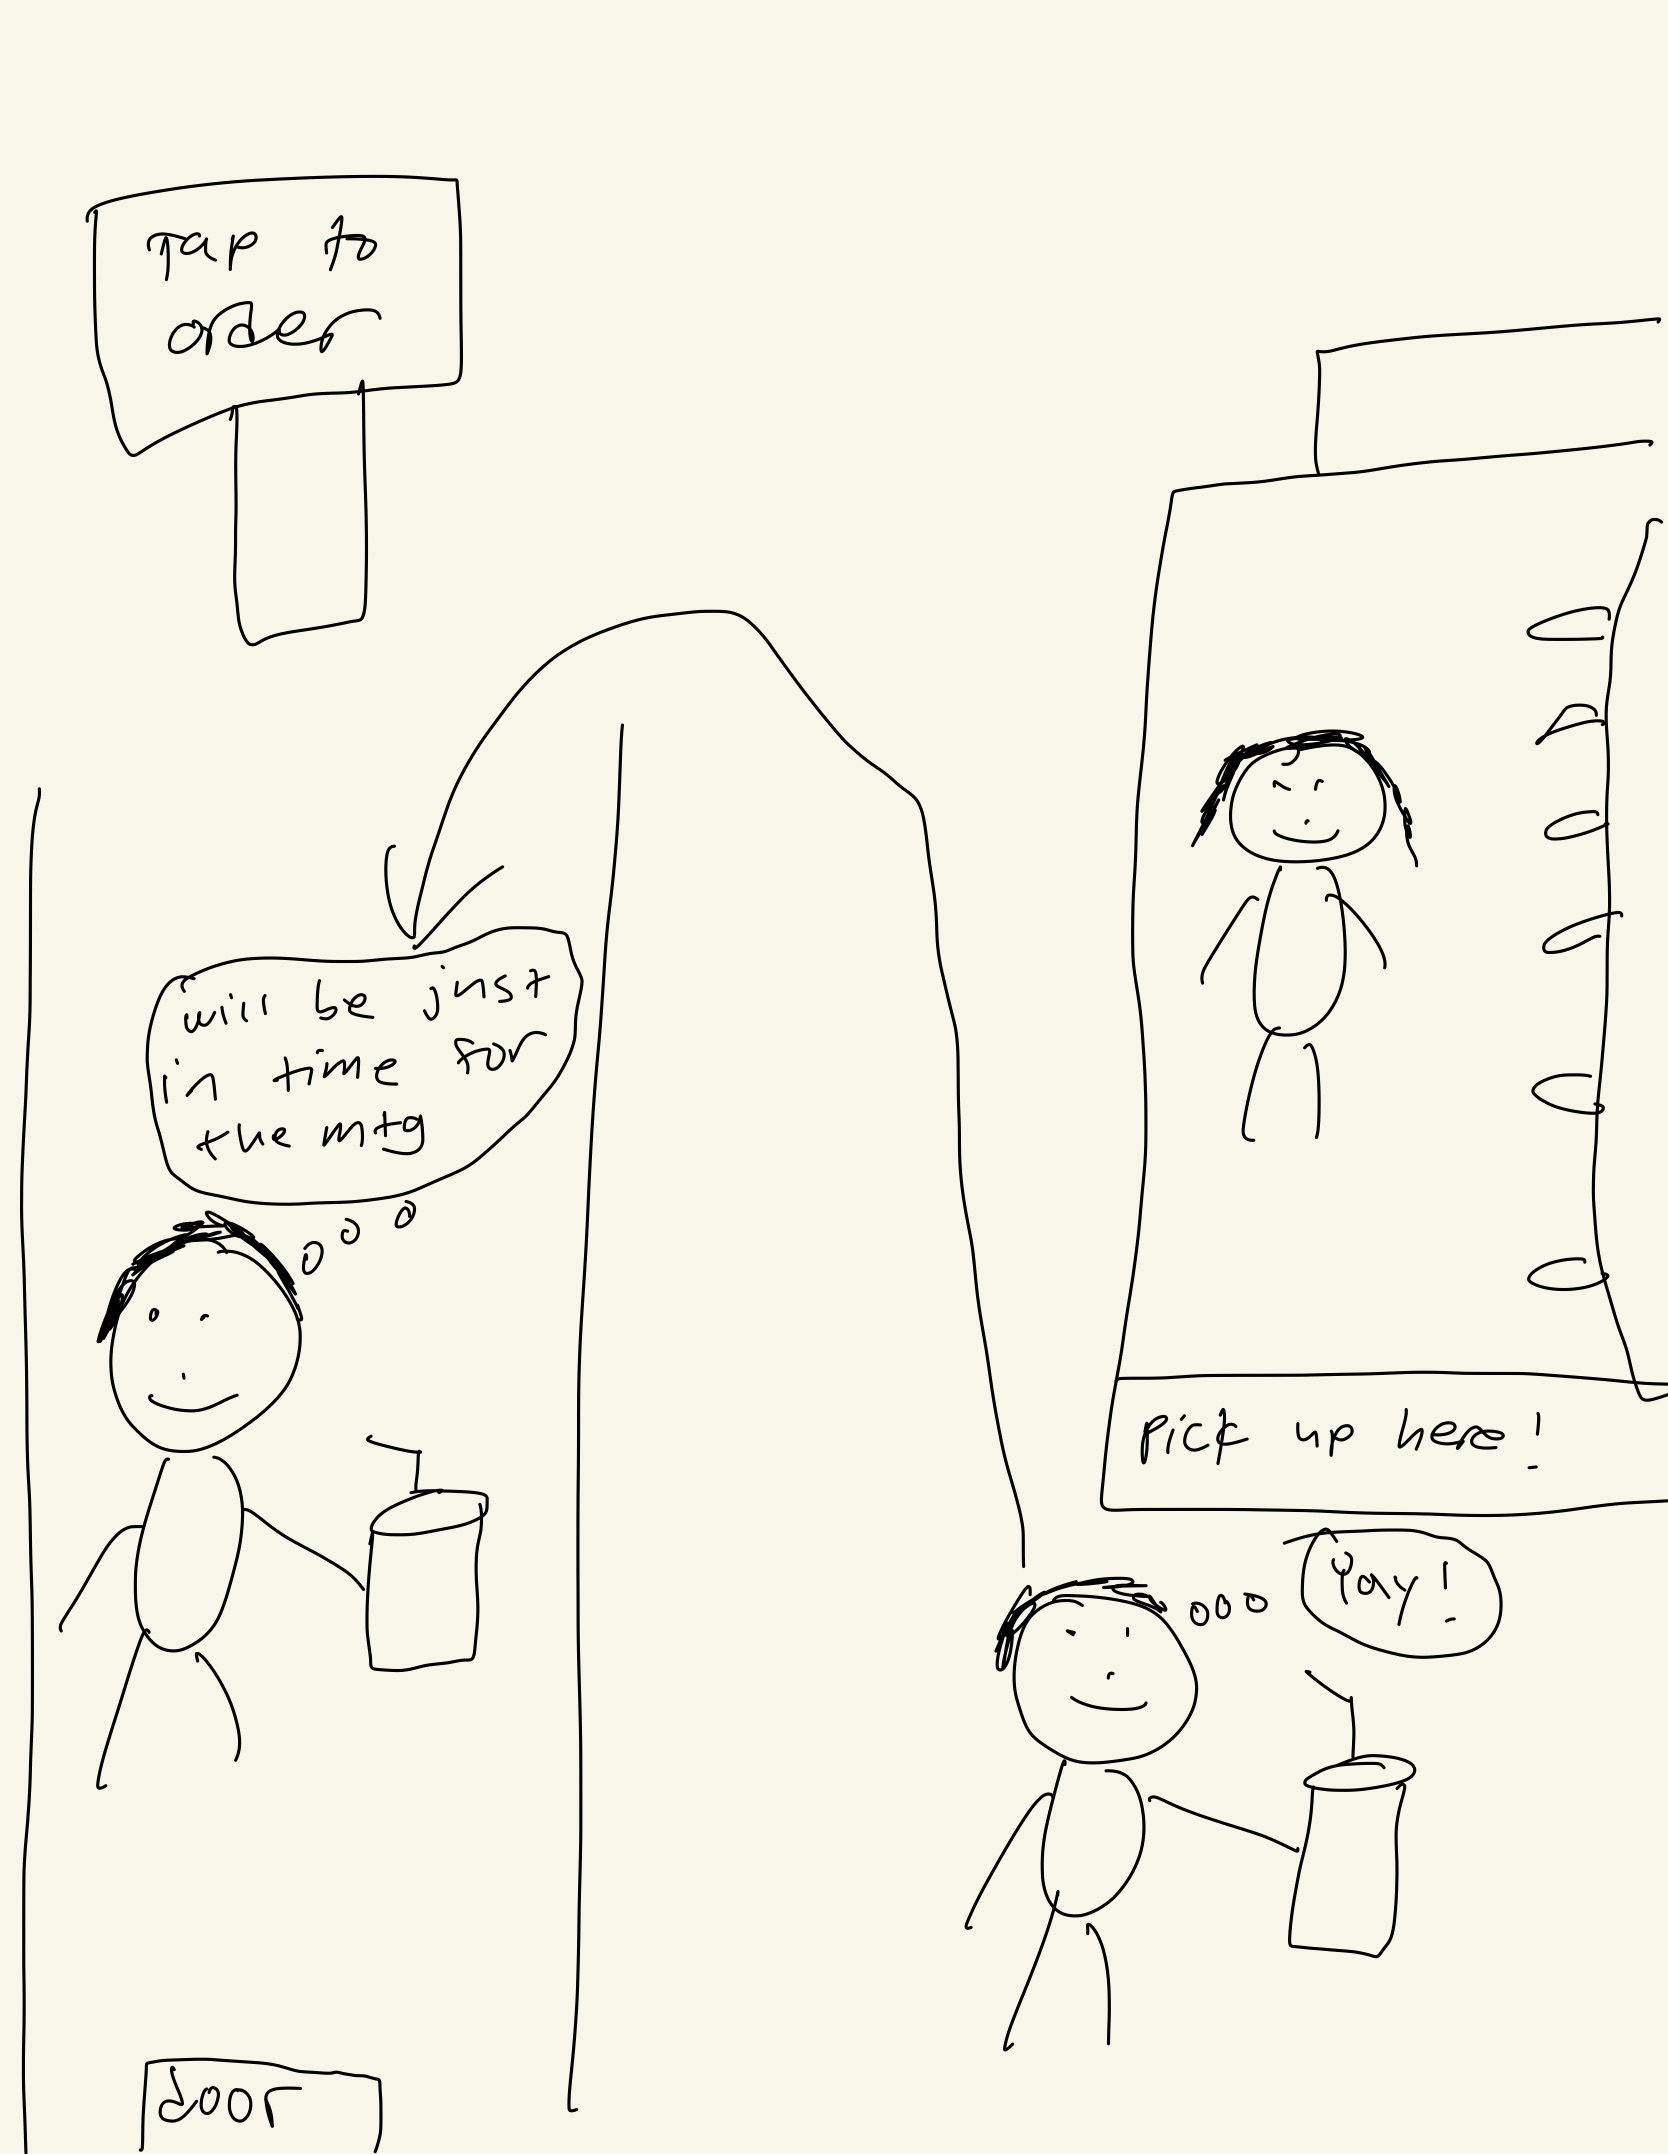 Tap to
order
will be just
in time for
the mtg
Pick up here!
Yay!
door